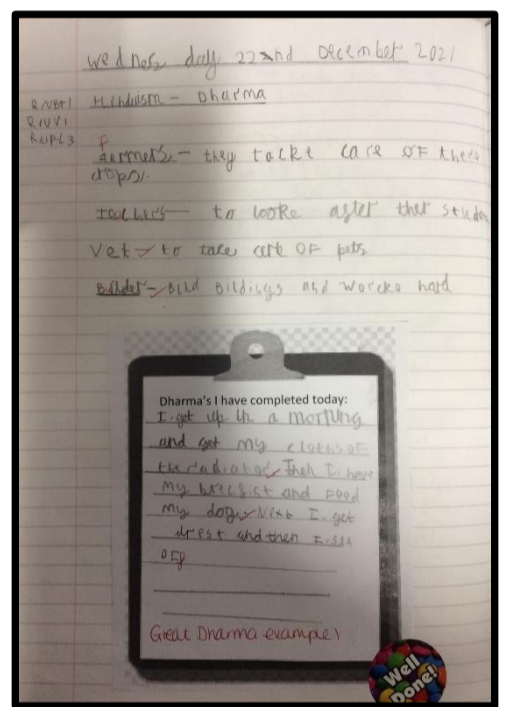 Wednes day 22nd December 2021
Hinduism - Dharma
farmers - they tacke care OF there
crops.
teachers - to looke after ther studen
Vet - to take care OF pets
Builder - Bild Bildings and worcke hard
Dharma's I have completed today:
I get up in a morning
and get my cloths OF
the radiator. Then I have
my brecfist and Feed
my dog. Next I get
drest and then I
OFF
Great Dharma example!
Well
Done!